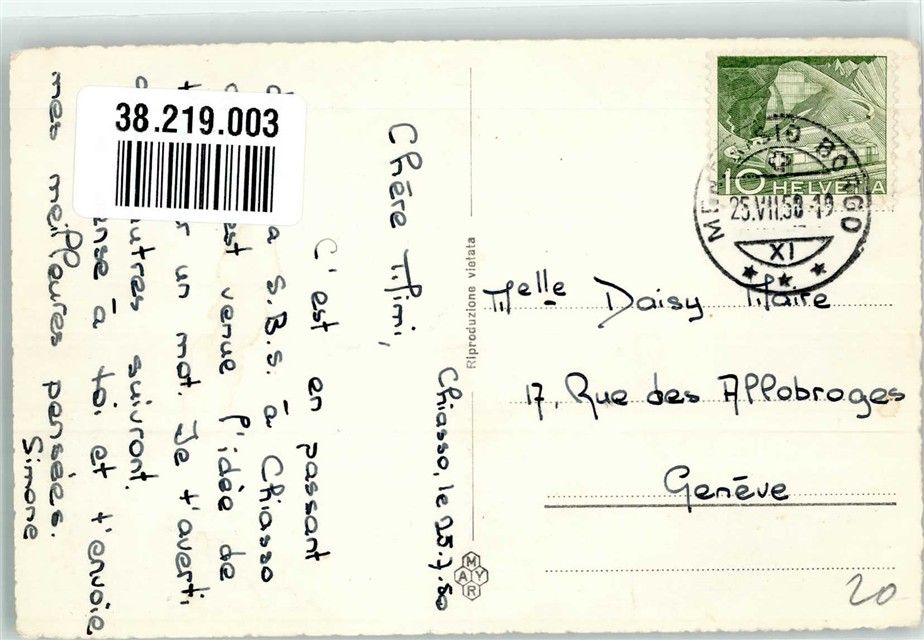 38.219.003
Chiasso, le 25.7.50
Chère Mimi,
C'est en passant
a S.B.S. à Chiasso
est venue l'idée de
un mot. Je t'averti
autres suivront.
pense à toi et t'envoie
mes meilleures pensées.
Simone
Riproduzione vietata
MAYR
10 HELVETIA
SIO BORGO
25.VII.50-19
XI
Melle Daisy Maire
17, Rue des Allobroges
Genève
20